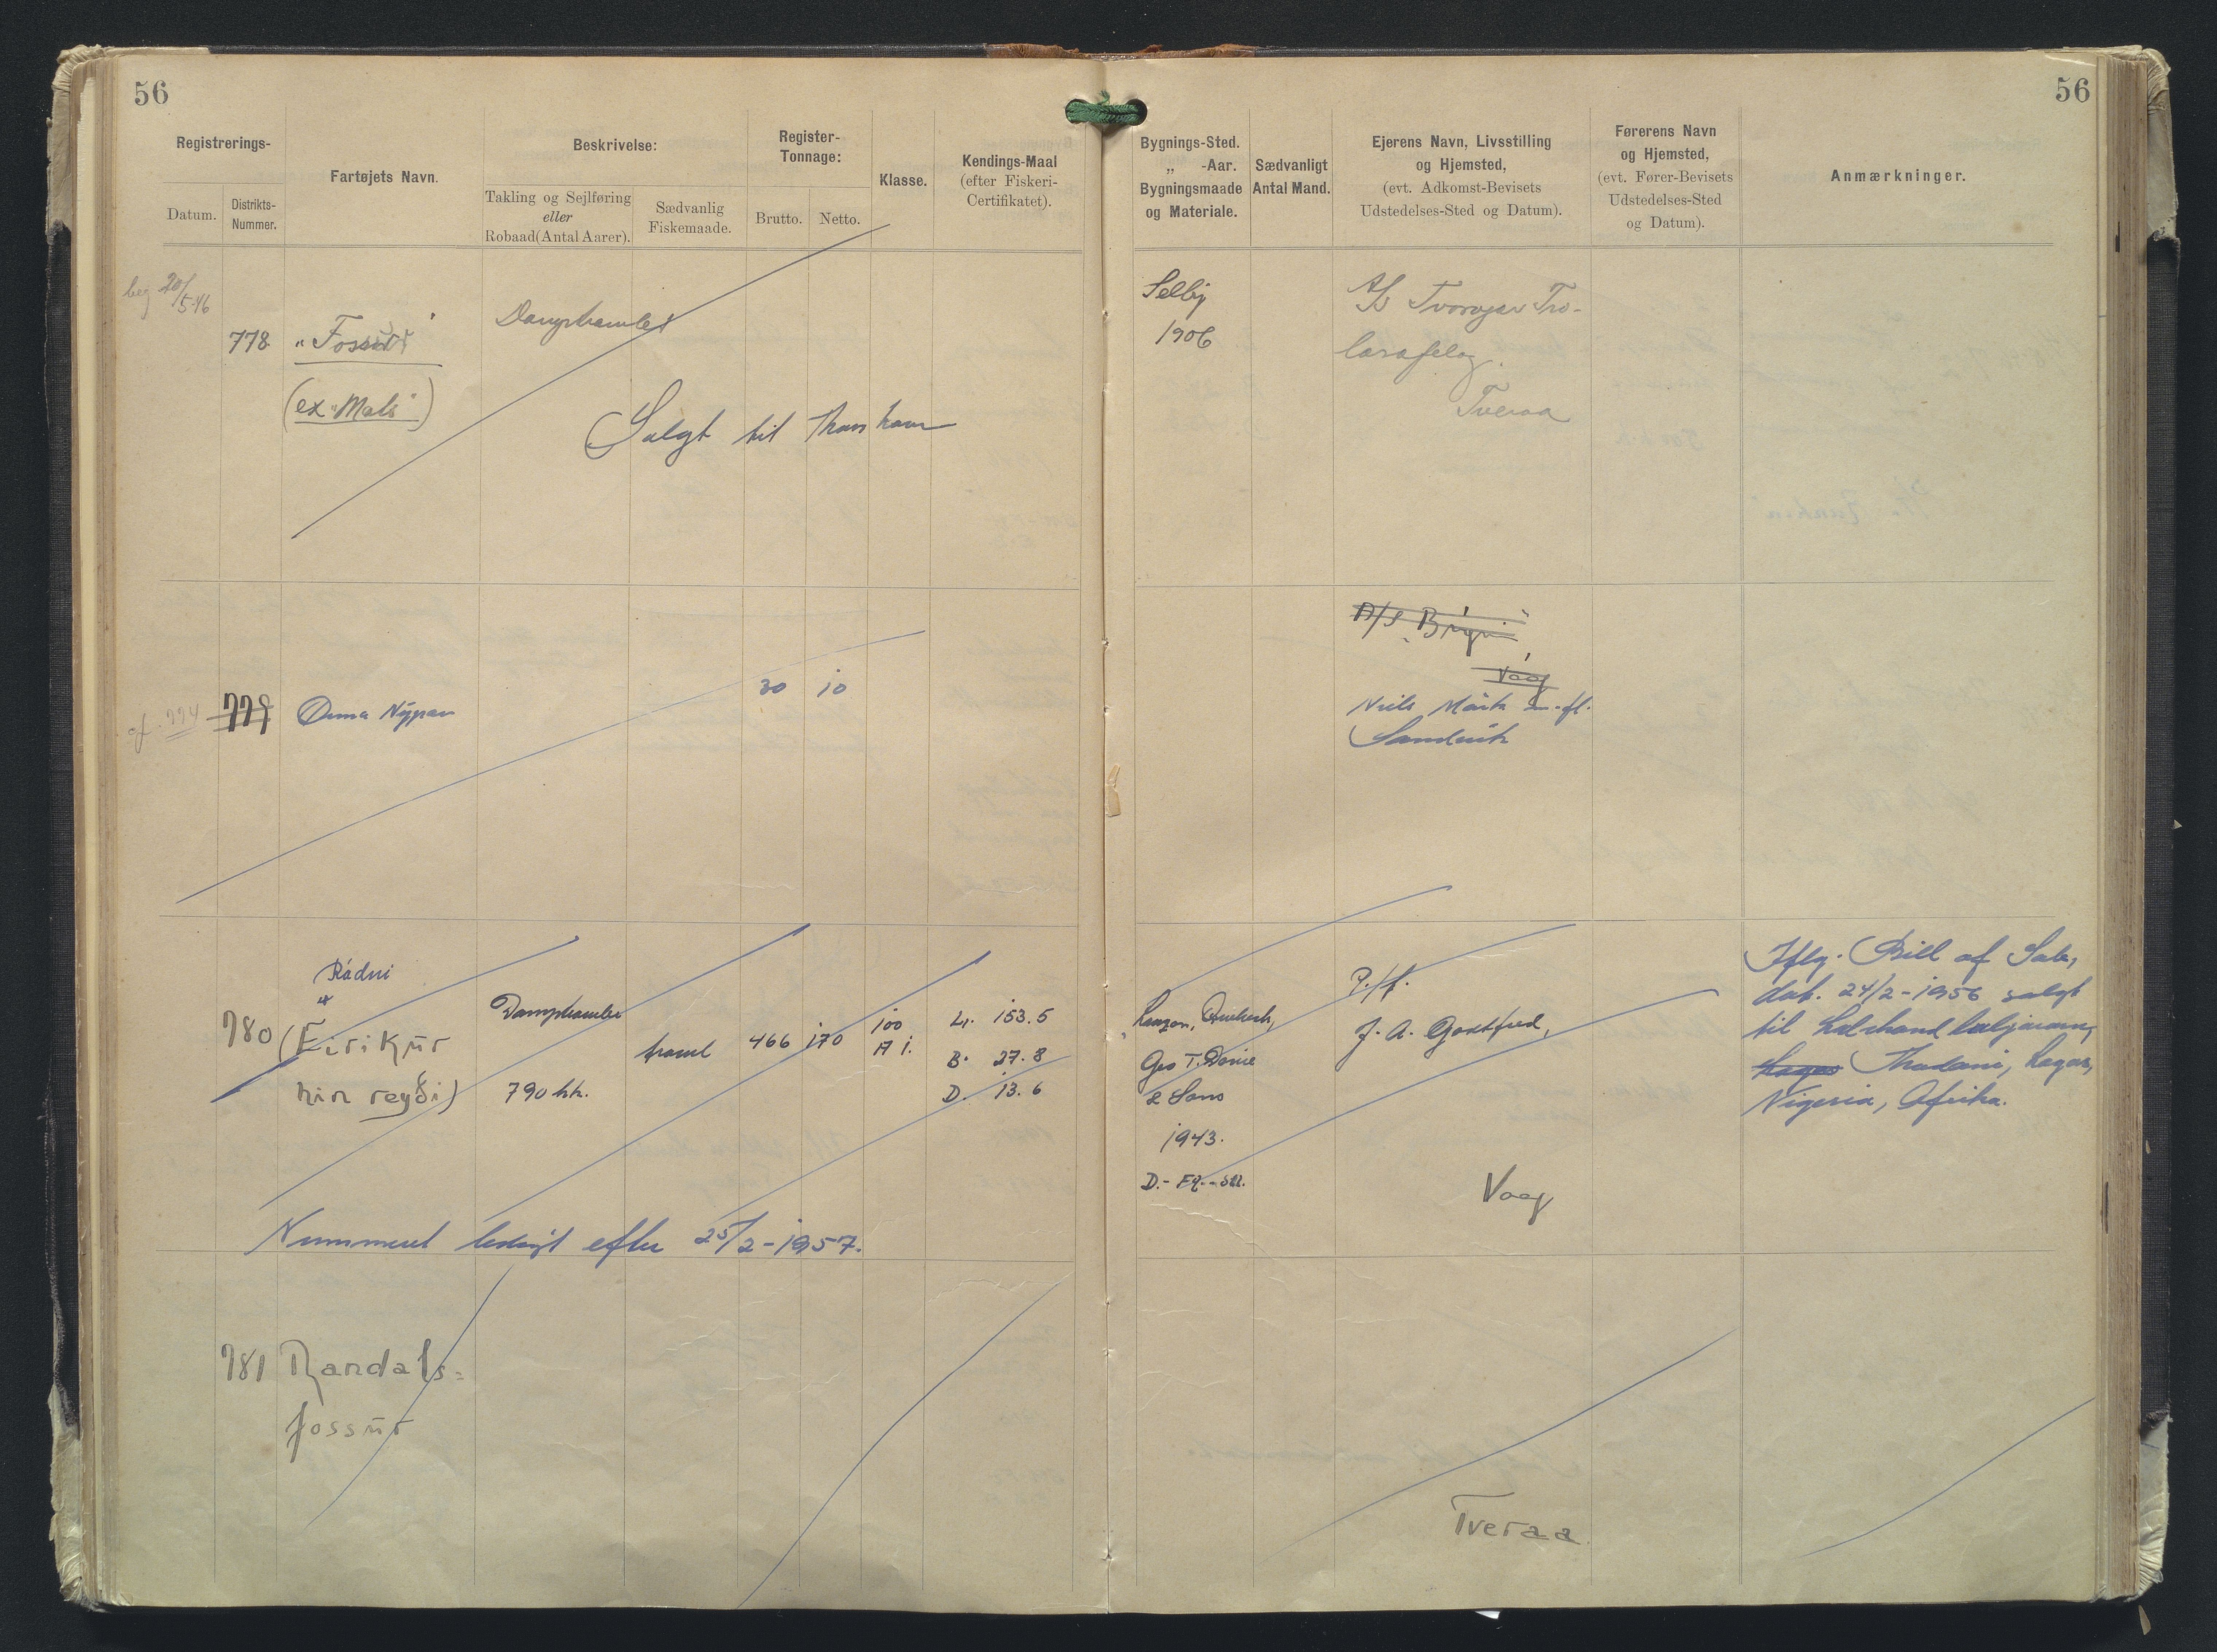 56
Registrerings-
Datum.
Distrikts-
Nummer.
Fartøjets Navn.
Beskrivelse:
Takling og Sejlføring
eller
Robaad(Antal Aarer).
Sædvanlig
Fiskemaade.
Register-
Tonnage:
Brutto.
Netto.
Klasse.
Kendings-Maal
(efter Fiskeri-
Certifikatet).
20/5-46
778
"Fossur"
(ex "Mals")
Salgt til Thorshavn
779
30 10
Rádni
780
(Eirikur
hin reyði)
790 hk.
trawl
466
170
100
A 1.
L. 153.5
B. 27.8
D. 13.6
Nummeret ledigt efter 25/2-1957.
781
Randals=
fossur
56
Bygnings-Sted.
„ -Aar.
Bygningsmaade
og Materiale.
Sædvanligt
Antal Mand.
Ejerens Navn, Livsstilling
og Hjemsted,
(evt. Adkomst-Bevisets
Udstedelses-Sted og Datum).
Førerens Navn
og Hjemsted,
(evt. Fører-Bevisets
Udstedelses-Sted
og Datum).
Anmærkninger.
Selby
1906
A/S Tvøroyar Tro-
larafelag.
Tveraa
Vaag
Sandvik
Geo T. Davie
& Sons
1943.
P/f.
J. A. Godtfred,
Vaag
Iflg. Bill of Sale,
dat. 24/2-1956 salgt
til
Lagos Thadani, Lagos,
Nigeria, Afrika.
Tveraa